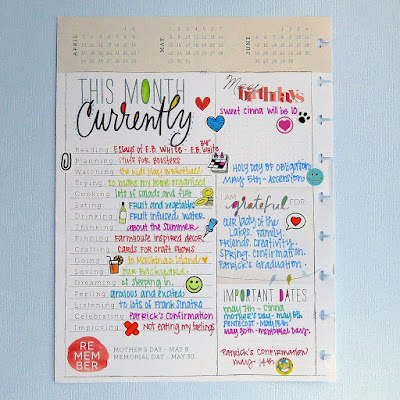 APRIL
MAY
JUNE
THIS MONTH
Currently
Reading Essays of E.B. White - E.B. White
Planning Stuff for Boosters
Watching the kids play
Trying to make my home organized
Cooking lots of salads and fish
Eating Fruit and vegetables
Drinking Fruit infused water
Thinking about the summer
Pinning Farmhouse inspired decor
Crafting Cards for craft shows
Going to Mackinac Island
Loving our backyard
Dreaming of sleeping in
Feeling anxious and excited
Listening to lots of Frank Sinatra
Celebrating Patrick's Confirmation
Improving Not eating my feelings
RE
MEM
BER
MOTHER'S DAY - MAY 8
MEMORIAL DAY - MAY 30
May
birthdays
sweet cinna will be 10.
Holy Day of Obligation
May 5th - Ascension
I AM
grateful FOR
our body of the
Lakes. Family.
Friends. creativity.
Spring. Confirmation.
Patrick's Graduation.
IMPORTANT DATES
may 7th - cinna
mother's day - may 8th
Pentecost - May 15th
may 30th - memorial day.
Patrick's Confirmation
May 14th